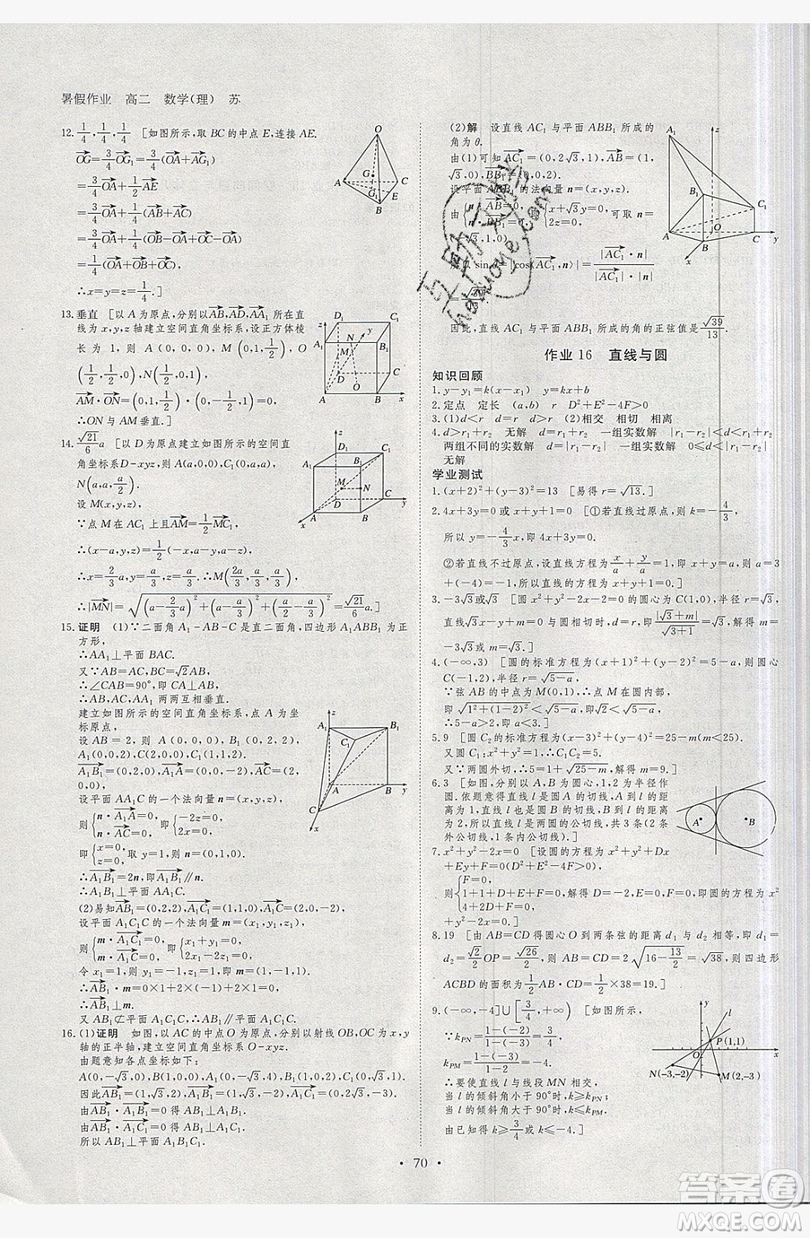 暑假作业 高二 数学(理) 苏
12. 1/4, 1/4, 1/4 [如图所示,取BC的中点E,连接AE.
OG→=3/4 OG₁→=3/4(OA→+AG₁→)
=3/4 OA→+1/2 AE→
=3/4 OA→+1/4(AB→+AC→)
=3/4 OA→+1/4(OB→-OA→+OC→-OA→)
=1/4(OA→+OB→+OC→),
∴x=y=z=1/4.]
13.垂直 [以A为原点,分别以AB→,AD→,AA₁→所在直
线为x,y,z轴建立空间直角坐标系,设正方体棱
长为1,则A(0,0,0),M(0,1,1/2),O
(1/2,1/2,0),N(1/2,0,1).
AM→·ON→=(0,1,1/2)·(0,-1/2,1)=0,
∴ON与AM垂直.]
14. √21/6 a [以D为原点建立如图所示的空间直
角坐标系D-xyz,则A(a,0,0),C₁(0,a,a),
N(a,a,a/2).
设M(x,y,z),
∵点M在AC₁上且AM→=1/2 MC₁→,
∴(x-a,y,z)=1/2(-x,a-y,a-z),
∴x=2/3 a,y=a/3,z=a/3.∴M(2a/3,a/3,a/3),
∴|MN→|=√((a-2/3 a)²+(a-a/3)²+(a/2-a/3)²)=√21/6 a.]
15.证明 (1)∵二面角A₁-AB-C是直二面角,四边形A₁ABB₁为正
方形,
∴AA₁⊥平面BAC.
又∵AB=AC,BC=√2AB,
∴∠CAB=90°,即CA⊥AB,
∴AB,AC,AA₁两两互相垂直.
建立如图所示的空间直角坐标系,点A为
坐标原点,
设AB=2,则A(0,0,0),B₁(0,2,2),
A₁(0,0,2),C(2,0,0),C₁(1,1,2).
A₁B₁→=(0,2,0),A₁A→=(0,0,-2),AC→=(2,0,0),
设平面AA₁C的一个法向量n=(x,y,z),
则{n·A₁A→=0, n·AC→=0, 即{-2z=0, 2x=0,
即{x=0, z=0, 取y=1,则n=(0,1,0).
∴A₁B₁→=2n,即A₁B₁→∥n.
∴A₁B₁⊥平面AA₁C.
(2)易知AB₁→=(0,2,2),A₁C₁→=(1,1,0),A₁C→=(2,0,-2),
设平面A₁C₁C的一个法向量m=(x₁,y₁,z₁),
则{m·A₁C₁→=0, m·A₁C→=0, 即{x₁+y₁=0, 2x₁-2z₁=0,
令x₁=1,则y₁=-1,z₁=1,即m=(1,-1,1).
∴AB₁→·m=0×1+2×(-1)+2×1=0,
∴AB₁→⊥m.
又AB₁⊄平面A₁C₁C,∴AB₁∥平面A₁C₁C.
16.(1)证明 如图,以AC的中点O为原点,分别以射线OB,OC为x,y
轴的正半轴,建立空间直角坐标系O-xyz.
由题意知各点坐标如下:
A(0,-√3,0),B(1,0,0),A₁(0,-√3,4),B₁(1,0,2),C₁(0,√3,1),
因此AB₁→=(1,√3,2),A₁B₁→=(1,√3,-2),A₁C₁→=(0,2√3,-3).
由AB₁→·A₁B₁→=0得AB₁⊥A₁B₁.
由AB₁→·A₁C₁→=0得AB₁⊥A₁C₁.
所以AB₁⊥平面A₁B₁C₁.
(2)解 设直线AC₁与平面ABB₁所成的
角为θ.
由(1)可知AC₁→=(0,2√3,1),AB→=(1,
√3,0),
设平面ABB₁的法向量n=(x,y,z).
可取n=
√3,1,0).
|cos⟨AC₁→,n⟩|=|AC₁→·n|/(|AC₁→|·|n|)
因此,直线AC₁与平面ABB₁所成的角的正弦值是√39/13.
作业16 直线与圆
知识回顾
1.y-y₁=k(x-x₁) y=kx+b
2.定点 定长 (a,b) r D²+E²-4F>0
3.(1)d<r d=r d>r (2)相交 相切 相离
4.d>r₁+r₂ 无解 d=r₁+r₂ 一组实数解 |r₁-r₂|<d<r₁+r₂
两组不同的实数解 d=|r₁-r₂| 一组实数解 0≤d<|r₁-r₂|
无解
学业测试
1.(x+2)²+(y-3)²=13 [易得r=√13.]
2.4x+3y=0或x+y+1=0 [①若直线过原点,则k=-4/3,
所以y=-4/3 x,即4x+3y=0.
②若直线不过原点,设直线方程为x/a+y/a=1,即x+y=a.则a=3
+(-4)=-1,所以直线的方程为x+y+1=0.]
3.-3√3或√3 [圆x²+y²-2x-2=0的圆心为(1,0),半径r=√3,直线
√3x-y+m=0与圆相切时,圆心到直线的距离等于半径,即|√3+m|/√(3+1)=
√3,解得m=√3或-3√3.]
4.(-∞,3) [圆的标准方程为(x+1)²+(y-2)²=5-a,易知圆心
C(-1,2),半径r=√(5-a),
∵弦AB的中点为M(0,1),∴点M在圆内部,
即√(1²+(1-2)²)<√(5-a),
∴5-a>2,∴a<3.]
5.9 [圆C₂的标准方程为(x-3)²+(y-4)²=25-m(m<25).
又圆C₁:x²+y²=1,∴|C₁C₂|=5.
又∵两圆外切,∴5=1+√(25-m),解得m=9.]
6.3 [如图,分别以A,B为圆心,1,2为半径作
圆.依题意得直线l是圆A的切线,A到l的距
离为1,直线l也是圆B的切线,B到l的距离为
2,所以直线l是两圆的公切线,共3条(2条
外公切线,1条内公切线).]
7.x²+y²-2x=0 [设圆的方程为x²+y²+Dx+
Ey+F=0(D²+E²-4F>0),则
{F=0, 1+1+D+E+F=0, 4+2D+F=0, 解得D=-2,E=0,F=0,即圆的方程为x²+y²-2x=0.]
8.19 [由AB=CD得圆心O到两条弦的距离d₁与d₂相等,故d₁=
d₂=√2/2 OP=√2/2=√26/2,所以AB=CD=2√(16-13/2)=√38,则四边形
ACBD的面积为1/2 AB×CD=1/2×38=19.]
9.(-∞,-4]∪[3/4,+∞) [如图所示,
∵k_PN=(1-(-2))/(1-(-3))=3/4,
k_PM=(1-(-3))/(1-2)=-4,
∴要使直线l与线段MN相交,
当l的倾斜角小于90°时,k≥k_PN;
当l的倾斜角大于90°时,k≤k_PM.
由已知得k≥3/4或k≤-4.]
• 70 •
答案卷
MXQE.COM